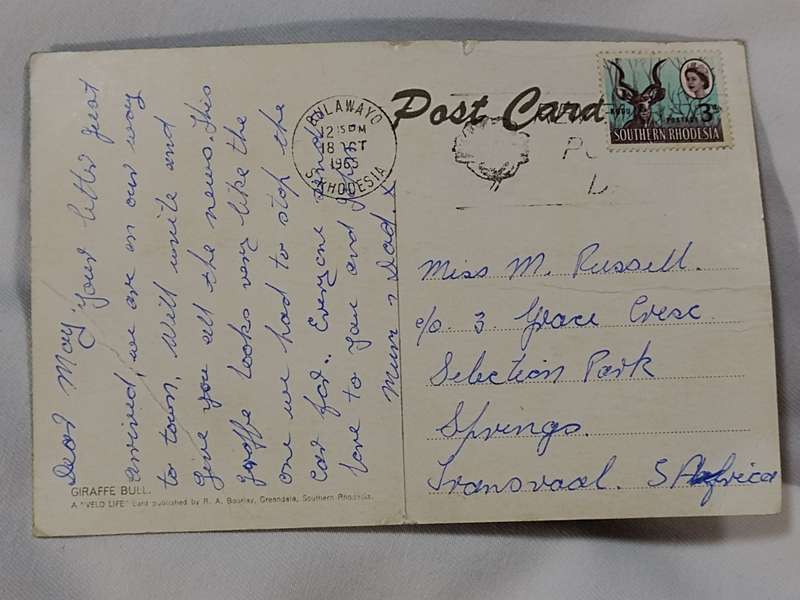 Dear May, Your letter just
arrived, we are on our way
to town. Will write and
give you all the news. This
giraffe looks very like the
one we had to stop the
car for. Everyone sends
love to you and
Mum & Dad. x
GIRAFFE BULL.
A "VELD LIFE" card published by R. A. Bourlay, Greendale, Southern Rhodesia.
Post Card
BULAWAYO
12 15 PM
18 OCT
1965
S. RHODESIA
KUDU
POSTAGE
3D
SOUTHERN RHODESIA
Miss M. Russell.
c/o. 3. Grace Cresc.
Selection Park
Springs.
Transvaal. S Africa